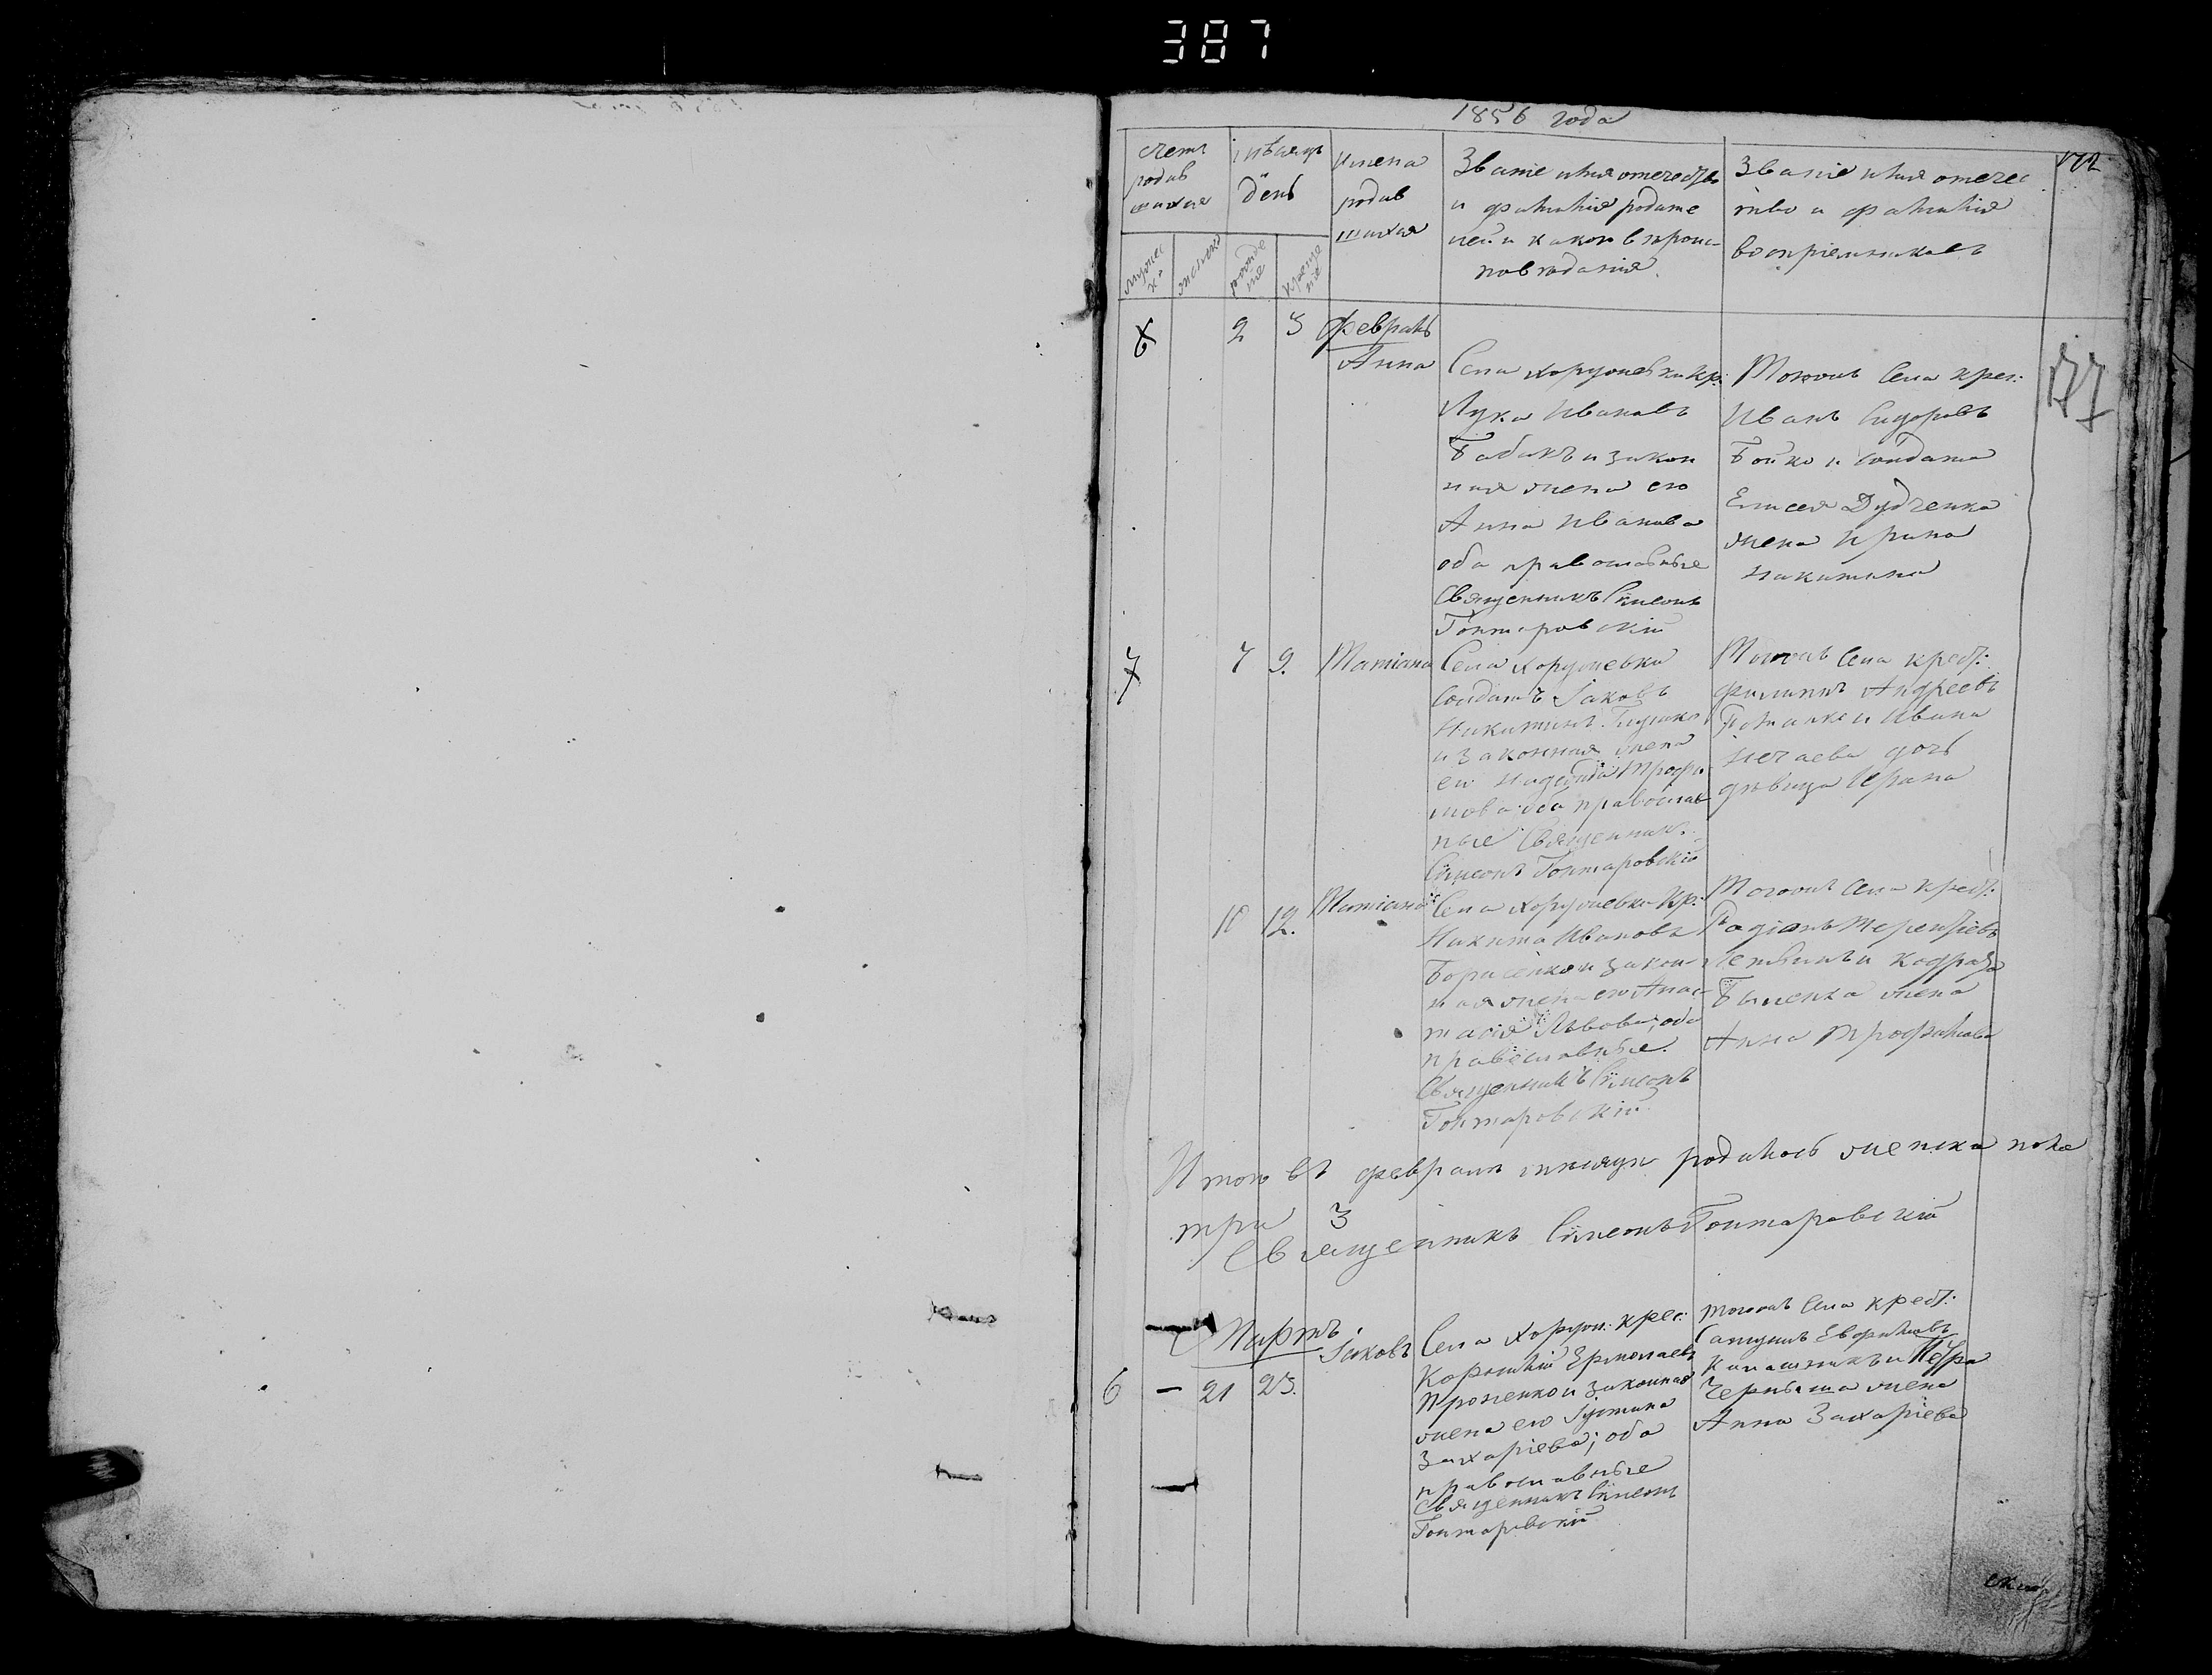 387
1856 года
счетъ родив шихся
мѣсяцъ день
имена родив шихся
Званіе имя отечество и фамилія родителей и какого вѣроисповѣданія.
Званіе имя отечество и фамилія воспріемниковъ
мужес к:
женска
рожденіе
крещеніе
6
2
3
февраль
Анна
Села Хоружевки кр:
Лука Ивановъ
Бабакъ и закон
ная жена его
Анна Иванова
оба православные
Священникъ Сімеонъ
Гонтаровскій
Тогожъ села крес:
Иванъ Сидоровъ
Бойко и солдата
Елисея Дудченка
жена Ирина
Никитина
7
7
9.
Татіана
Села Хоружевки
солдатъ Іаковъ
Никитинъ
и законная жена
его Надежда Трофи
мова оба православ
ные Священник.
Сімеонъ Гонтаровскій
Тогожъ села крест:
Филиппъ Андреевъ
и Ивана
Нечаева дочь
дѣвица Ирина
10
12.
Татіана
Села Хоружевки Кр:
Никита Ивановъ
Борисенко и закон
ная жена его Анас
тасія Львова; оба
православные.
Священникъ Сімеонъ
Гонтаровскій
Тогожъ села крест:
Радіонъ Терентіевъ
и Кодрата
жена
Анна Трофимова
Итого въ февралѣ мѣсяцѣ родилось женска пола
три 3
Священникъ Сімеонъ Гонтаровскій
Мартъ.
6
—
21
23.
Іаковъ
Села Хоруж: крес:
Корнилій Ермолаевъ
Проненко и законная
жена его Іустина
Захаріева; оба
православные
Священникъ Сімеонъ
Гонтаровскій
Тогожъ села крест:
Самуилъ Евфимовъ
Калашникъ и Петра
Черныша жена
Анна Захаріева